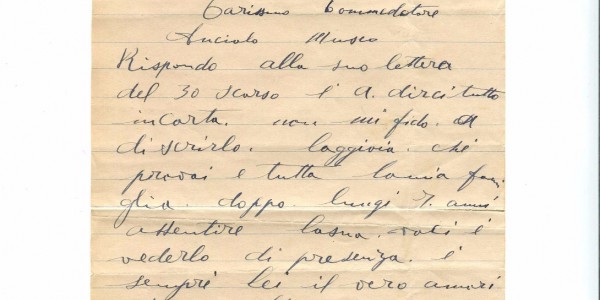 Carissimo Commendatore
Anciolo Musco
Rispondo alla sua lettera
del 30 scorso e a. dirci tutto
incarta. non mi fido. a
discrirlo. laggioia. che
provai e tutta lamia fami
glia. doppo. lungi 7. anni
assentire lasua. voci e
vederlo di presenza. e
sempri lei il vero amori